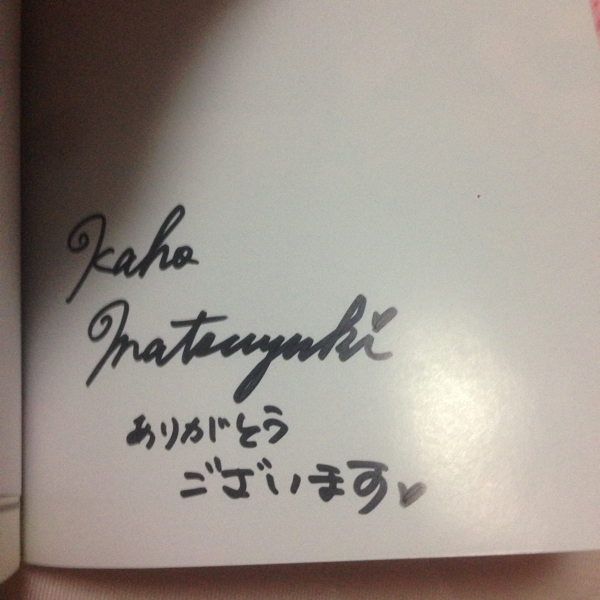 Kaho
Matsuyuki
ありがとう
ございます♥